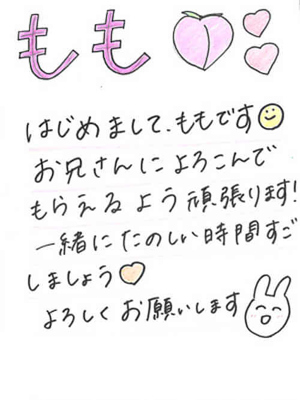 もも
はじめまして、ももです
お兄さんによろこんで
もらえるよう頑張ります!
一緒にたのしい時間すご
しましょう
よろしくお願いします